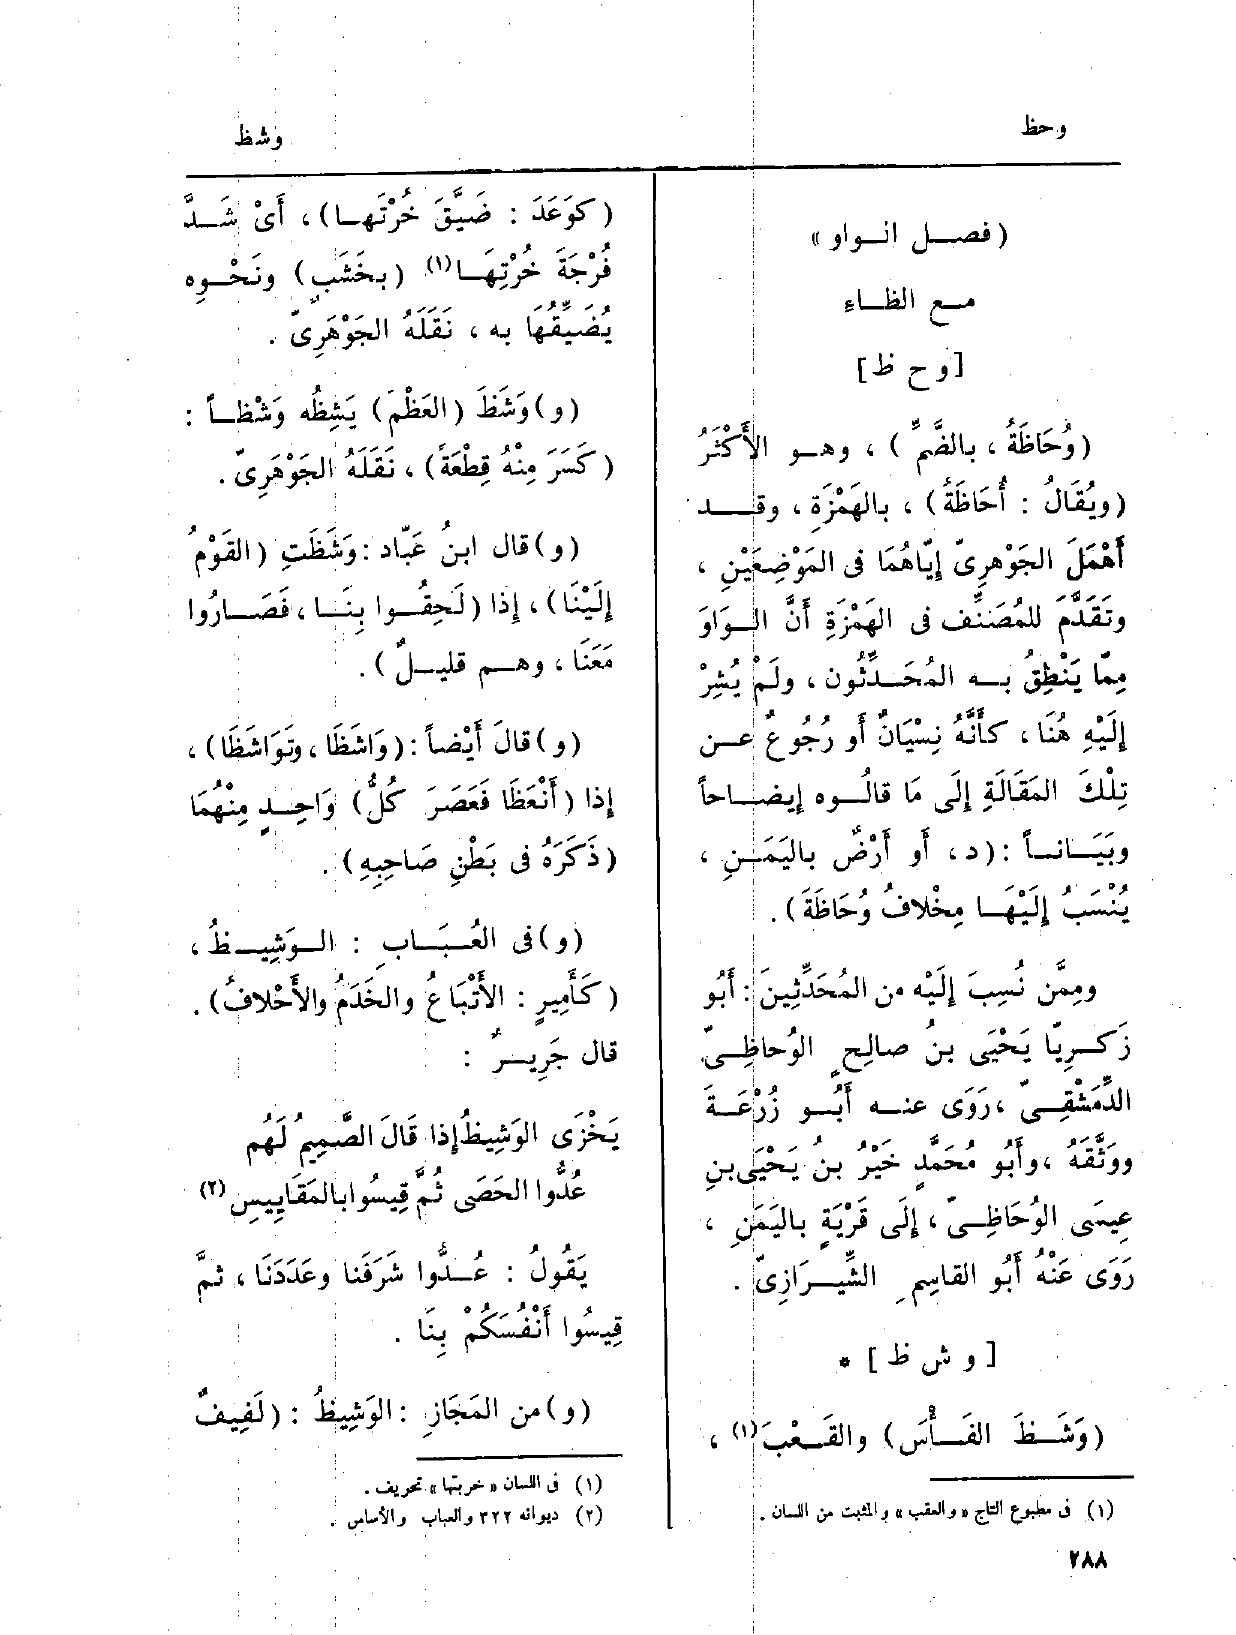 وحظ
وشظ
(فصل الواو»
مع الظاء
[و ح ظ]
(وُحَاظَةُ ، بالضَّمِّ) ، وهو الأَكْثَرُ
(ويُقَالُ : أُحَاظَةُ) ، بالهَمْزَةِ ، وقد
أَهْمَلَ الجَوْهَرِىّ إِيّاهُمَا فى المَوْضِعَيْنِ ،
وتَقَدَّمَ للمُصَنِّف فى الهَمْزَةِ أَنَّ الوَاوَ
مِمّا يَنْطِقُ به المُحَدِّثُون ، ولَمْ يُشِرْ
إِلَيْهِ هُنَا ، كأَنَّهُ نِسْيَانٌ أو رُجُوعٌ عن
تِلْكَ المَقَالَةِ إِلَى مَا قالُوه إِيضاحاً
وبَيَاناً : (د ، أَو أَرْضٌ باليَمَنِ ،
يُنْسَبُ إِلَيْهَا مِخْلافُ وُحَاظَةَ) .
ومِمَّن نُسِبَ إِلَيْه من المُحَدِّثِينَ : أَبُو
زَكَرِيّا يَحْيَى بنُ صالِحٍ الوُحاظِىّ
الدِّمَشْقِىّ ، رَوَى عنه أَبُو زُرْعَةَ
ووَثَّقَهُ ، وأَبُو مُحَمَّدٍ خَيْرُ بنُ يَحْيَى بنِ
عِيسَى الوُحَاظِىّ ، إِلَى قَرْيَةٍ باليَمَنِ ،
رَوَى عَنْهُ أَبُو القاسِمِ الشِّيرَازِىّ .
[و ش ظ] *
(وَشَظَ الفَأْسَ) والقَعْبَ(١) ،
(١) فى مطبوع التاج «والعقب» والمثبت من اللسان .
٢٨٨
(كوَعَدَ : ضَيَّقَ خُرْتَها) ، أَىْ شَدَّ
فُرْجَةَ خُرْتِهَا(١) (بخَشَبٍ) ونَحْوِه
يُضَيِّقُهَا به ، نَقَلَهُ الجَوْهَرِىّ .
(و) وَشَظَ (العَظْمَ) يَشِظُه وَشْظاً :
(كَسَرَ مِنْهُ قِطْعَةً) ، نَقَلَهُ الجَوْهَرِىّ .
(و) قال ابنُ عَبّاد : وَشَظَتِ (القَوْمُ
إِلَيْنَا) ، إذا (لَحِقُوا بِنَا ، فَصَارُوا
مَعَنَا ، وهم قليلٌ) .
(و) قالَ أَيْضاً : (وَاشَظَا ، وتَوَاشَظَا) ،
إذا (أَنْعَظَا فَعَصَرَ كُلُّ) وَاحِدٍ مِنْهُمَا
(ذَكَرَهُ فى بَطْنِ صَاحِبِهِ) .
(و) فى العُبَابِ : الوَشِيظُ ،
(كأَمِيرٍ : الأَتْبَاعُ والخَدَمُ والأَحْلافُ) .
قال جَرِيرٌ :
يَخْزَى الوَشِيظُ إذا قَالَ الصَّمِيمُ لَهُم
عُدُّوا الحَصَى ثُمَّ قِيسُوا بالمَقَايِيسِ (٢)
يَقُولُ : عُدُّوا شَرَفَنا وعَدَدَنَا ، ثمَّ
قِيسُوا أَنْفُسَكُمْ بِنَا .
(و) من المَجَازِ : الوَشِيظُ : (لَفِيفٌ
(١) فى اللسان «خربتها» تحريف .
(٢) ديوانه ٣٢٢ والعباب والأساس .